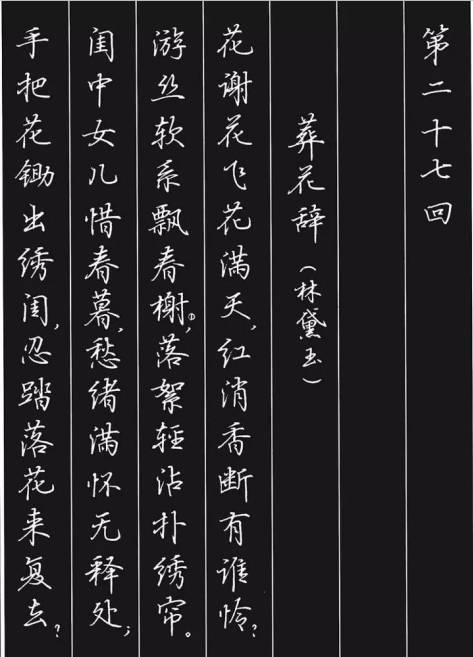 第二十七回
葬花辞（林黛玉）
花谢花飞花满天，红消香断有谁怜？
游丝软系飘春榭①，落絮轻沾扑绣帘。
闺中女儿惜春暮，愁绪满怀无释处；
手把花锄出绣闺，忍踏落花来复去？